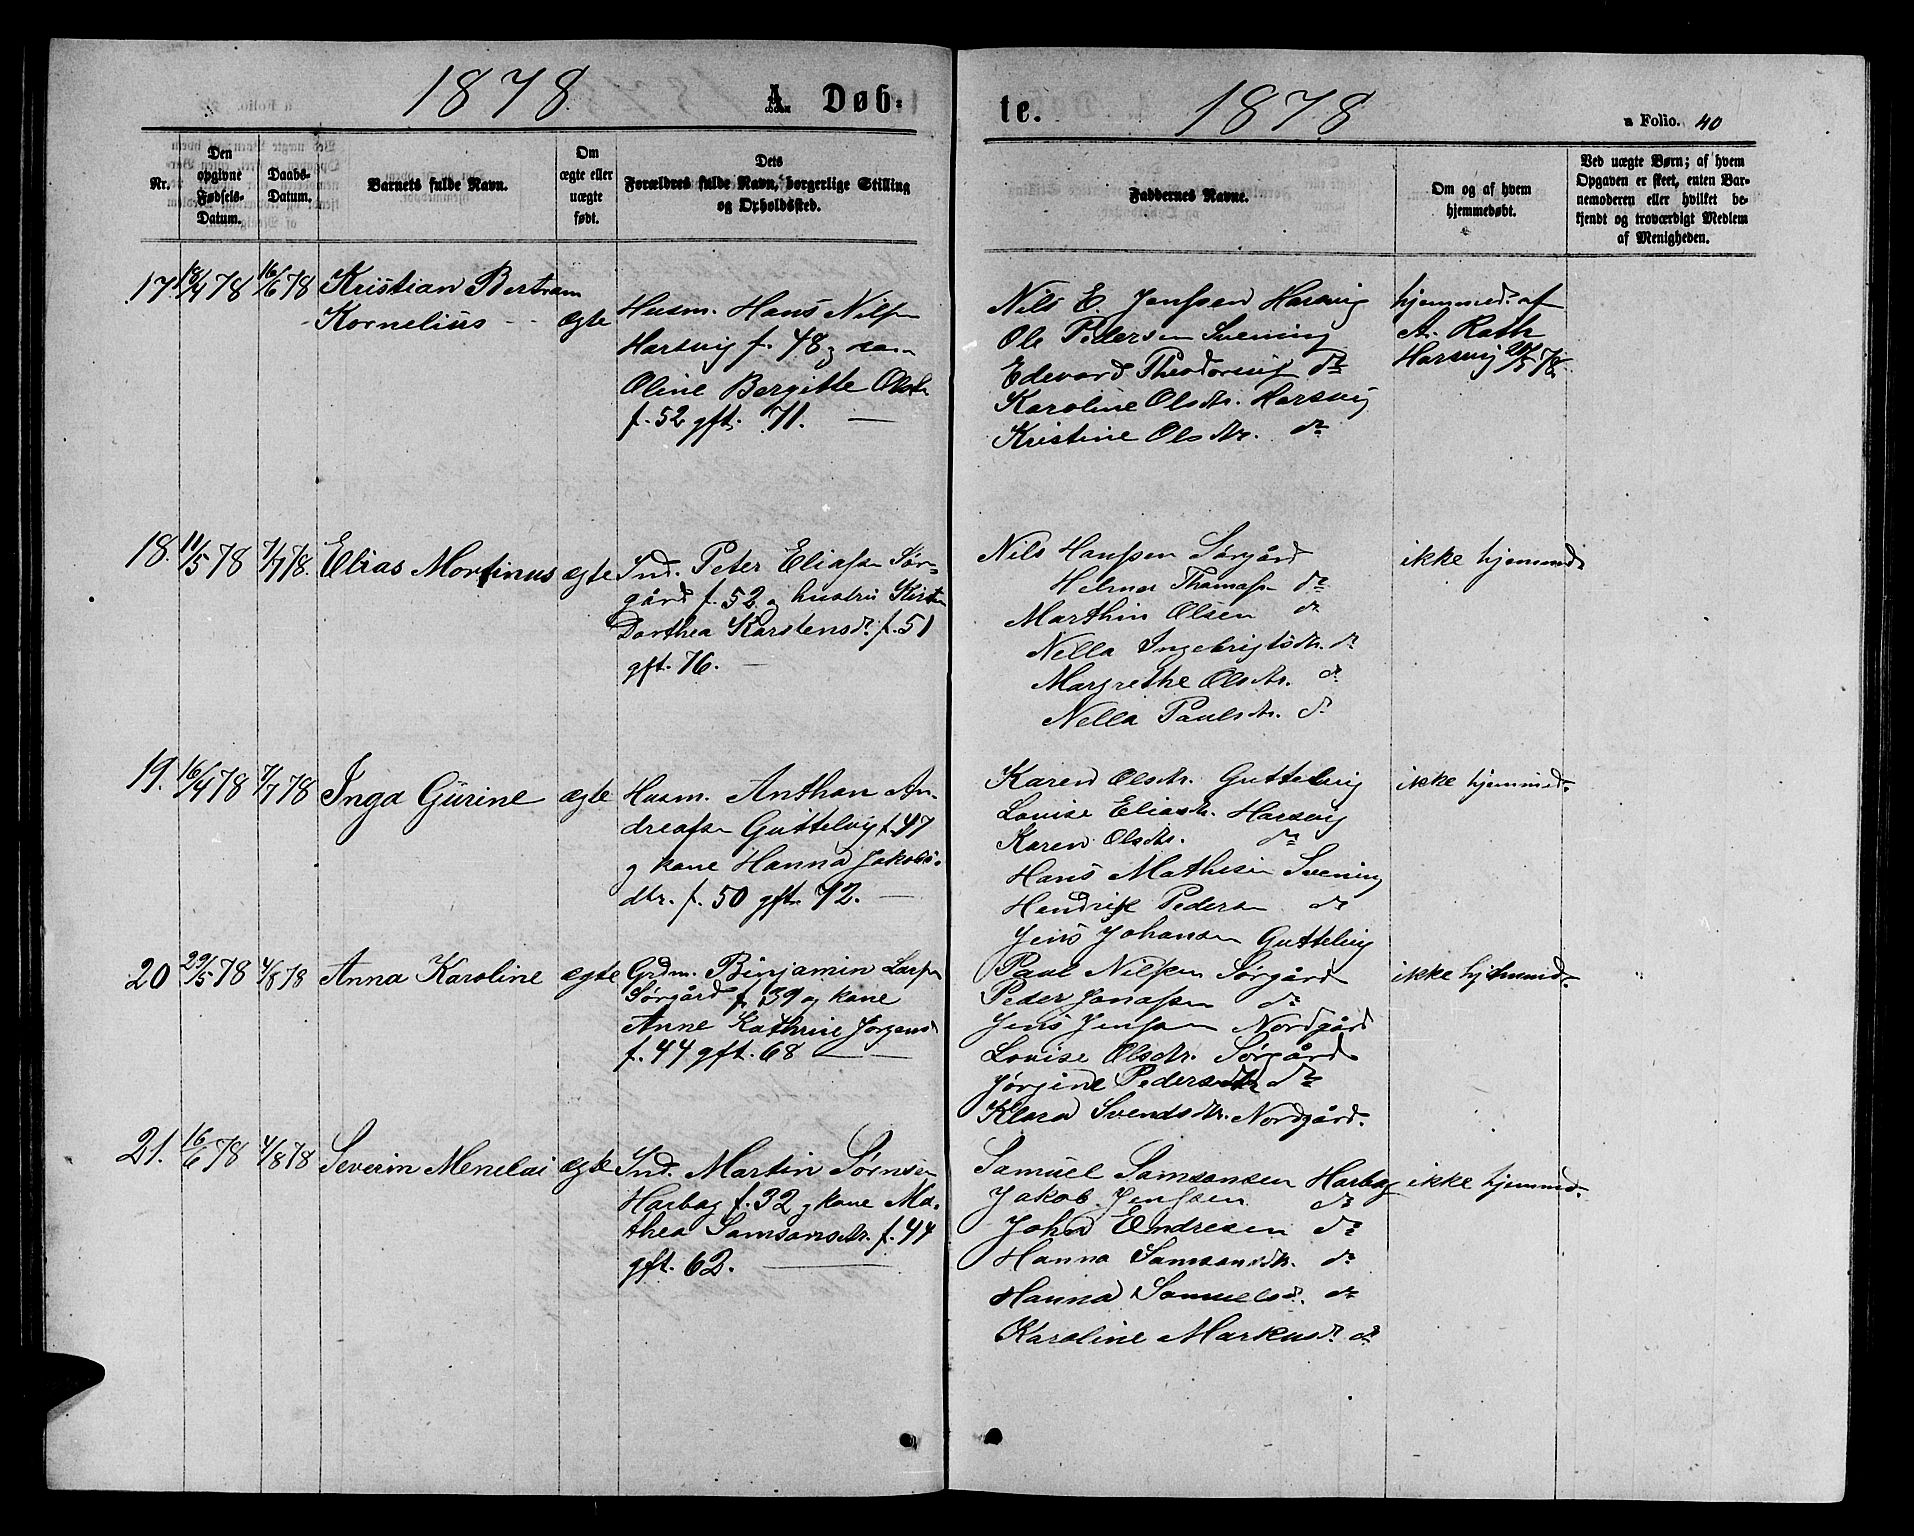 1878. A. Døb=
te. 1878 a Folio. 40
Nr.
Den opgivne Fødsels-Datum.
Daabs-Datum.
Barnets fulde Navn.
Om ægte eller uægte født.
Dets Forældres fulde Navn, borgerlige Stilling og Opholdssted.
Faddernes Navne.
Om og af hvem hjemmedøbt.
Ved uægte Børn; af hvem Opgaven er skeet, enten Barnemoderen eller hvilket bekjendt og troværdigt Medlem af Menigheden.
17. 18/4 78 16/6 78 Kristian Bertram
Kornelius ægte
Husm. Hans Nilsen
Harsvig f. 48 og
Oline Bergitte
f. 52 gft. 71. —
Nils E. Jenssen Harsvig
Ole Pedersen Svening
Edevard Theodorius do
Karoline Olsdtr. Harsvig
Kristine Olsdtr. do
hjemmed. af
A. Rath
Harsvig 20/5 78.
18. 11/5 78 7/7 78. Elias Mortinus ægte
Ind. Peter Eliassen Sør-
gård f. 52 og hustru Kirsten
Dorthea Karstensd. f. 51
gft. 76. —
Nils Hanssen Sørgård
Helmer Thomassen do
Marthin Olsen do
Nella Ingebrigtsdtr. do
Margrethe Olsdtr. do
Nella Paulsdtr. do
ikke hjemmed.
19. 16/4 78 7/7 78 Inga Gurine ægte
Husm. Anthon An-
dreassen Guttelvig f. 47
og kone Hanna Jakobs-
dtr. f. 50 gft. 72. —
Karen Olsdtr. Guttelvig
Lovise Eliasdtr. Harsvig
Karen Olsdtr. do
Hans Mathisen Svening
Hendrik Pedersen do
Jens Johansen Guttelvig
ikke hjemmed.
20 29/5 78 4/8 78 Anna Karoline ægte
Grdm. Binjamin Larsen
Sørgård f. 39 og kone
Anne Kathrine Jørgensd
f. 44 gft. 68 —
Paul Nilssen Sørgård
Peder Jonassen do
Jens Jenssen Nordgård
Lovise Olsdtr. Sørgård
Jørgine Pedersdtr do
Klara Svendsdtr. Nordgård.
ikke hjemmed.
21. 16/6 78 4/8 78 Severin Menelai ægte
Ind. Martin Sørensen
Harbag f. 32 og kone Ma-
thea Samsonsdtr. f. 44
gft. 62. —
Samuel Samsonsen Harbag
Jakob Jenssen do
John Endresen do
Hanna Samsonsdtr. do
Hanna Samuelsd. do
Karoline Markusd. do
ikke hjemmed.